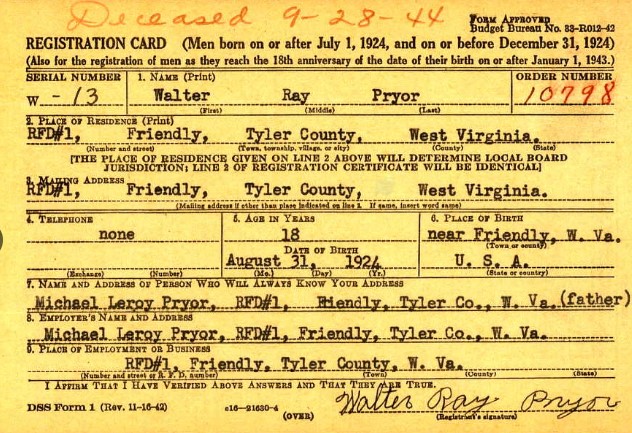 Deceased 9-28-44
FORM APPROVED
Budget Bureau No. 33-R012-42
REGISTRATION CARD (Men born on or after July 1, 1924, and on or before December 31, 1924)
(Also for the registration of men as they reach the 18th anniversary of the date of their birth on or after January 1, 1943.)
SERIAL NUMBER 1. NAME (Print) ORDER NUMBER
W - 13 Walter Ray Pryor 10798
(First) (Middle) (Last)
2. PLACE OF RESIDENCE (Print)
RFD#1, Friendly, Tyler County, West Virginia.
(Number and street) (Town, township, village, or city) (County) (State)
[THE PLACE OF RESIDENCE GIVEN ON LINE 2 ABOVE WILL DETERMINE LOCAL BOARD
JURISDICTION; LINE 2 OF REGISTRATION CERTIFICATE WILL BE IDENTICAL]
3. MAILING ADDRESS
RFD#1, Friendly, Tyler County, West Virginia.
(Mailing address if other than place indicated on line 2. If same, insert word same)
4. TELEPHONE 5. AGE IN YEARS 6. PLACE OF BIRTH
none 18 near Friendly, W. Va.
(Town or county)
DATE OF BIRTH
August 31, 1924 U. S. A.
(Exchange) (Number) (Mo.) (Day) (Yr.) (State or country)
7. NAME AND ADDRESS OF PERSON WHO WILL ALWAYS KNOW YOUR ADDRESS
Michael Leroy Pryor, RFD#1, Friendly, Tyler Co., W. Va. (father)
8. EMPLOYER'S NAME AND ADDRESS
Michael Leroy Pryor, RFD#1, Friendly, Tyler Co., W. Va.
9. PLACE OF EMPLOYMENT OR BUSINESS
RFD#1, Friendly, Tyler County, W. Va.
(Number and street or R. F. D. number) (Town) (County) (State)
I AFFIRM THAT I HAVE VERIFIED ABOVE ANSWERS AND THAT THEY ARE TRUE.
DSS Form 1 (Rev. 11-16-42) c16-21630-4 Walter Ray Pryor
(OVER) (Registrant's signature)